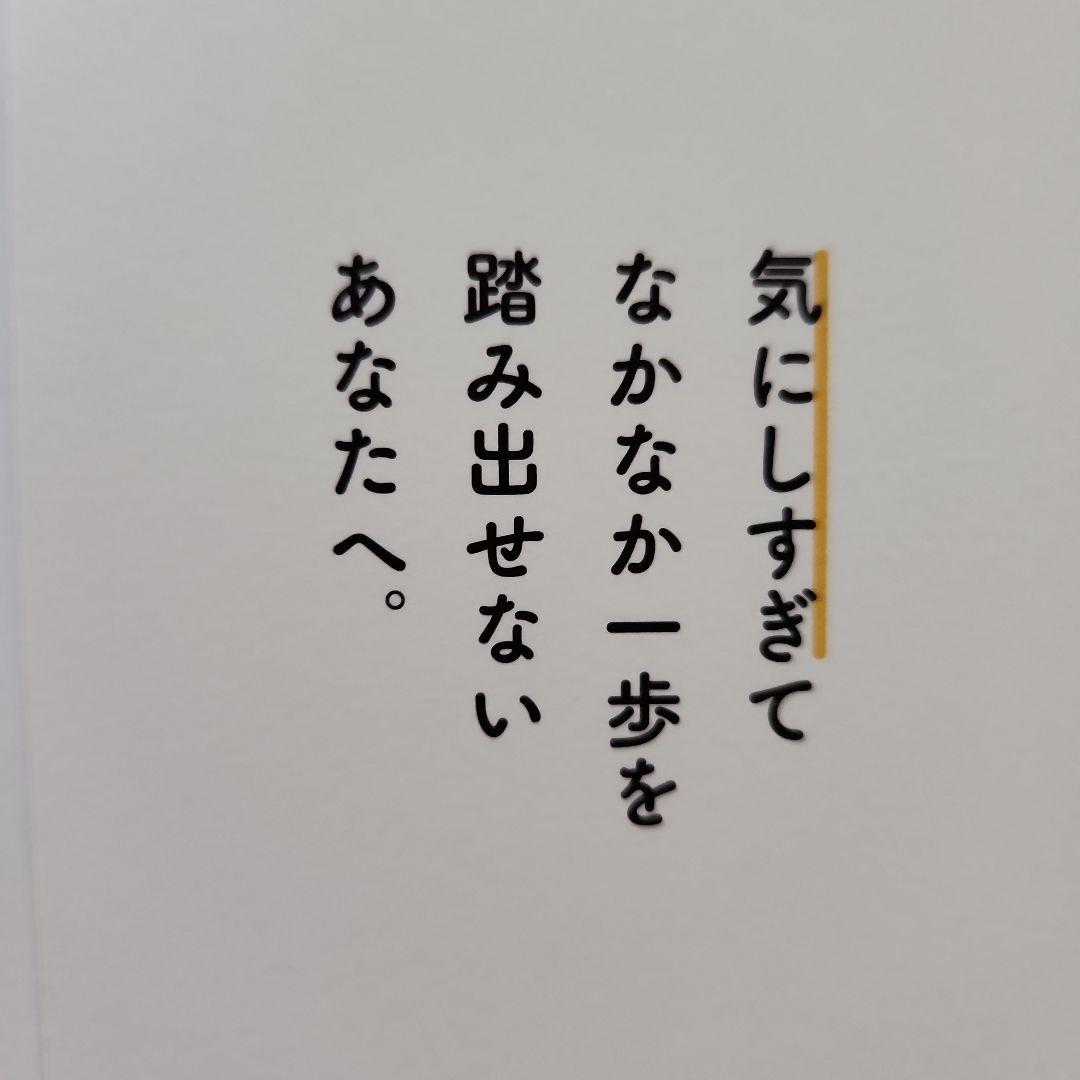 気にしすぎて
なかなか一歩を
踏み出せない
あなたへ。